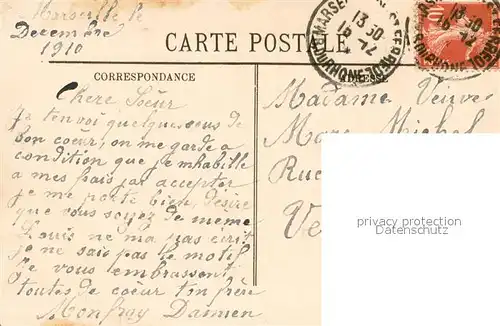 Marseille le
Decembre
1910
CARTE POSTALE
MARSEILLE
13 30
16 - 12
BOUCHES-DU-RHONE
13 30
16 - 12
10
CORRESPONDANCE
ADRESSE
Chere Soeur
Je tenvoi quelques sous de
bon coeur, on me garde a
condition que je mhabille
a mes frais jai accepter
je me porte bien, desire
que vous soyez de meme
Louis ne ma pas ecrit
je ne sais pas le motif
Je vous embrassent
toutes de coeur ton frère
Monfray Damien
Madame Veuve
Marc Michel
Rue
Ve
privacy protection
datenschutz